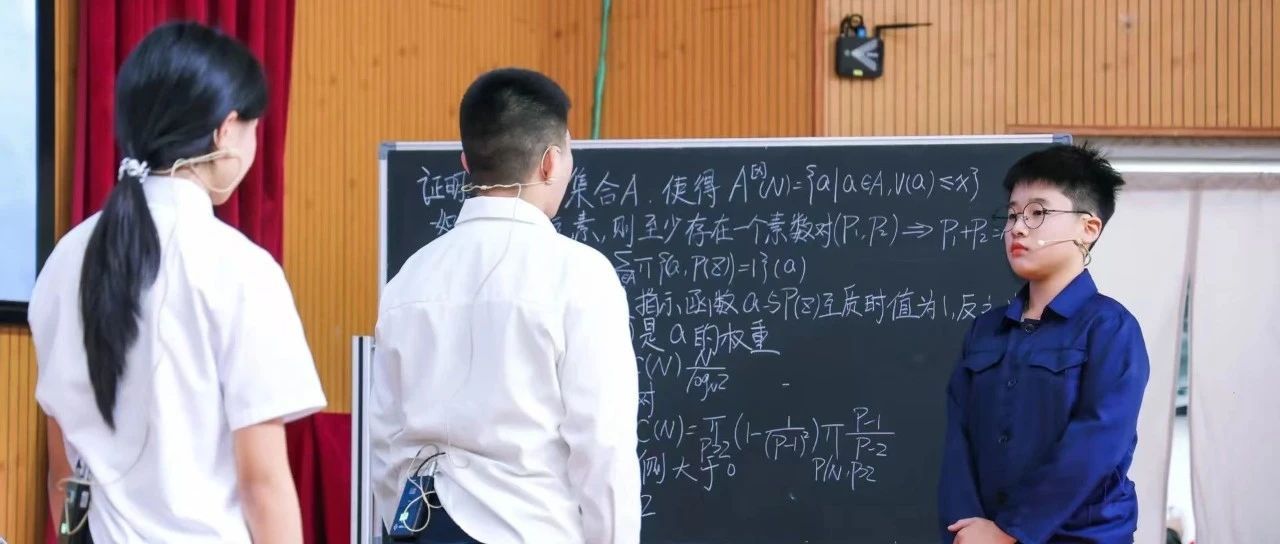 证明 集合A.使得 A^[x](N)={a|a∈A,V(a)≤x}
素,则至少存在一个素数对(P₁,P₂)⇒P₁+P₂=
∑π{a,P(z)=1}(a)
指示函数a与P(z)互质时值为1,反之
是a的权重
(N) N/log
对
C(N)=π P>2 (1-1/(P-1)²)π P|N,P>2 P-1/P-2
例大于0